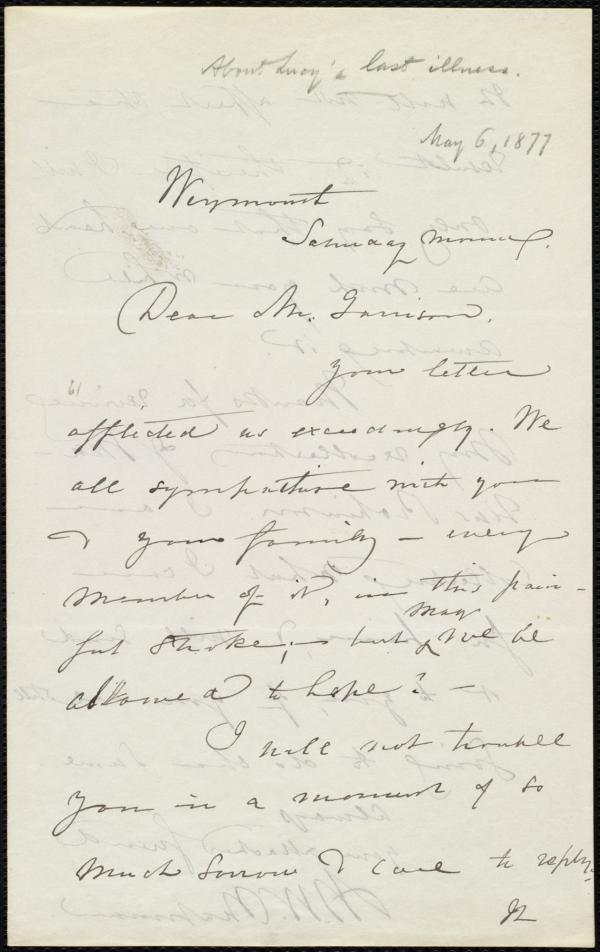 About Lucy's last illness.
May 6, 1877
Weymouth
Saturday Morning.
Dear Mr. Garrison,
Your letter
afflicted us exceedingly. We
all sympathise with you
& your family – every
member of it, in this pain-
ful stroke; – but may we be
allowed to hope? –
I will not trouble
you in a moment of so
much sorrow & care to reply.
It